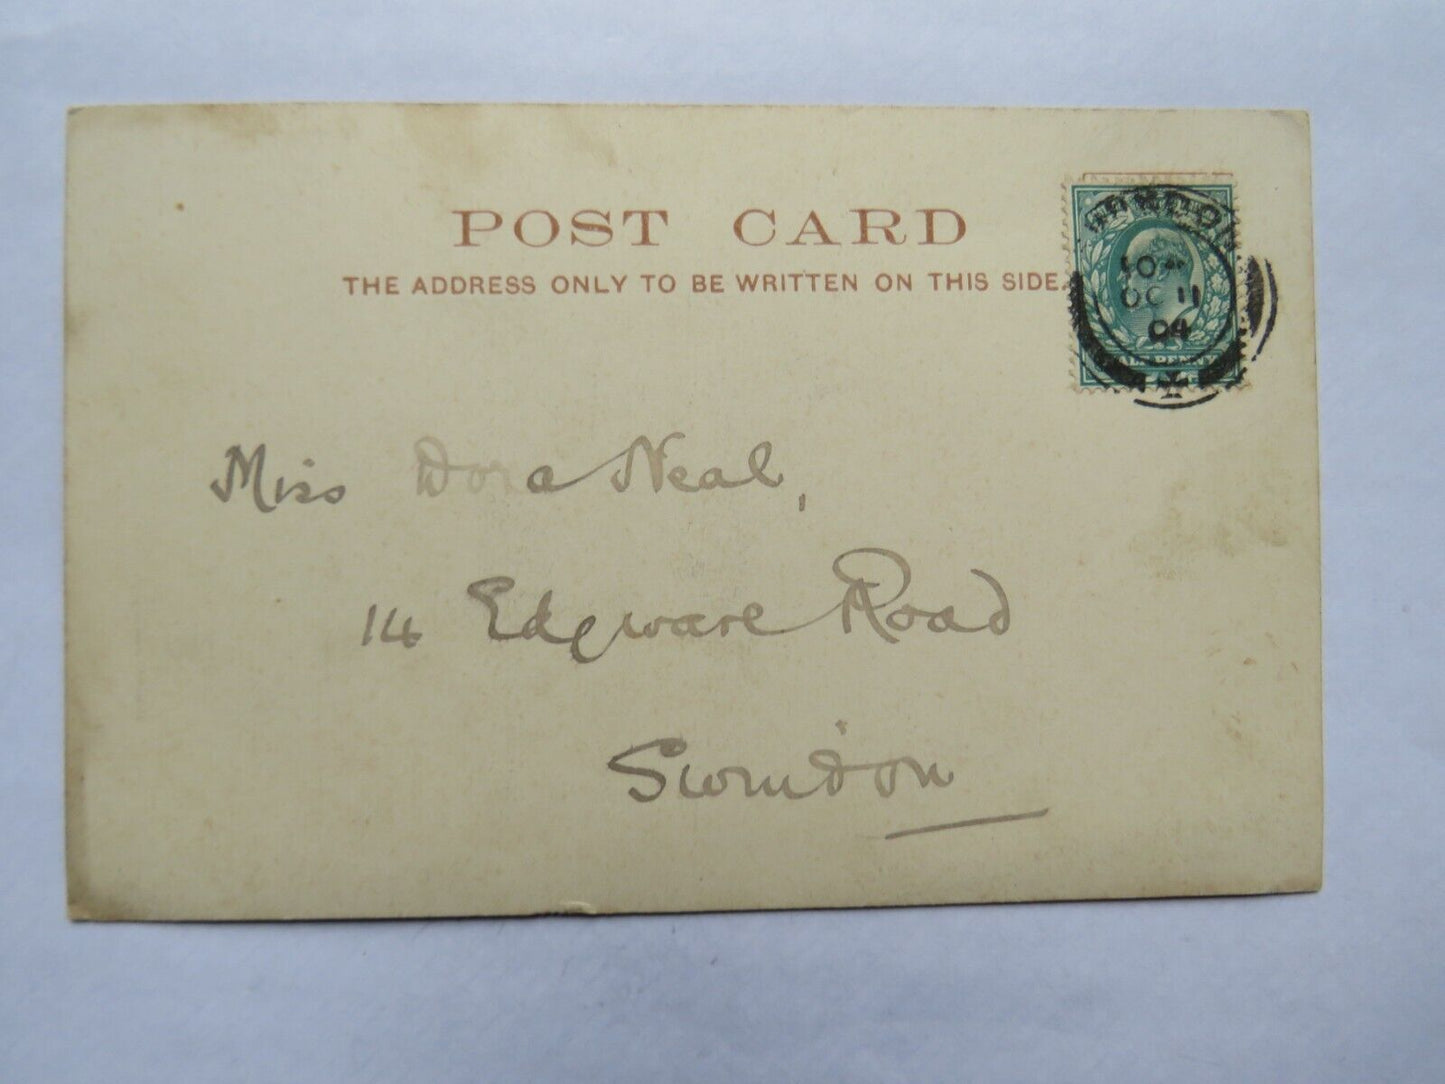 POST CARD
THE ADDRESS ONLY TO BE WRITTEN ON THIS SIDE.
LONDON
10
OC 11
04
HALFPENNY
Miss Dora Neal,
14 Edgware Road
Swindon